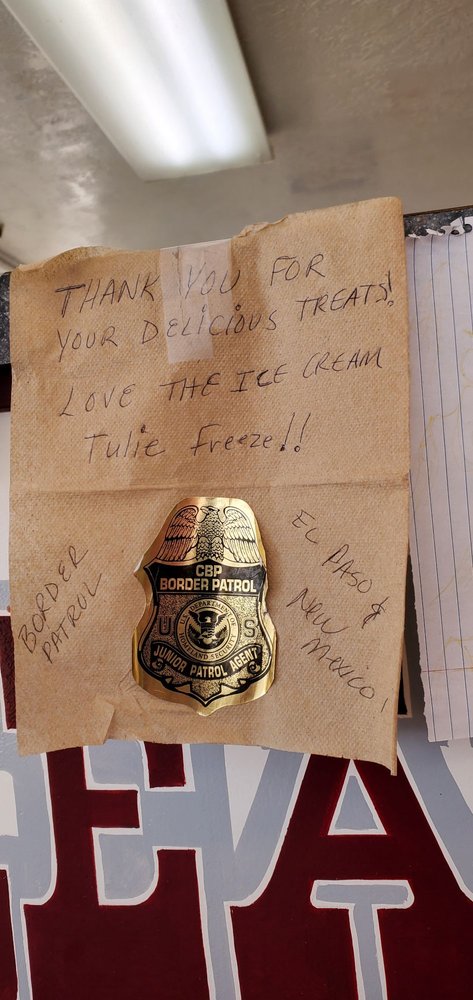 THANK YOU FOR
YOUR DELICIOUS TREATS!
LOVE THE ICE CREAM
Tulie Freeze!!
BORDER
PATROL
CBP
BORDER PATROL
U S
U.S. DEPARTMENT OF
HOMELAND SECURITY
JUNIOR PATROL AGENT
EL PASO &
NEW
MEXICO!
EA